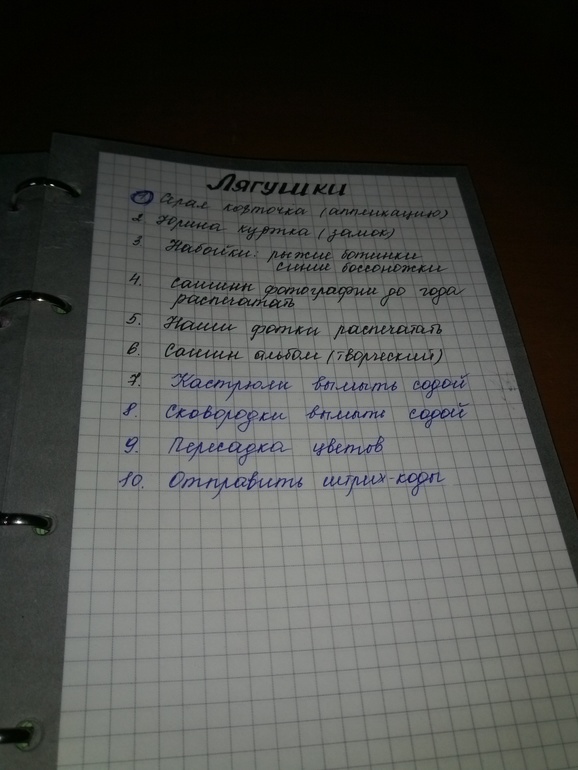 Лягушки
1. Серая кофточка (аппликацию)
2. Юрина куртка (замок)
3. Набойки: рыжие ботинки
синие боссоножки
4. Сашины фотографии до года
распечатать
5. Наши фотки распечатать
6. Сашин альбом (творческий)
7. Кастрюли вымыть содой
8. Сковородки вымыть содой
9. Пересадка цветов
10. Отправить штрих-коды